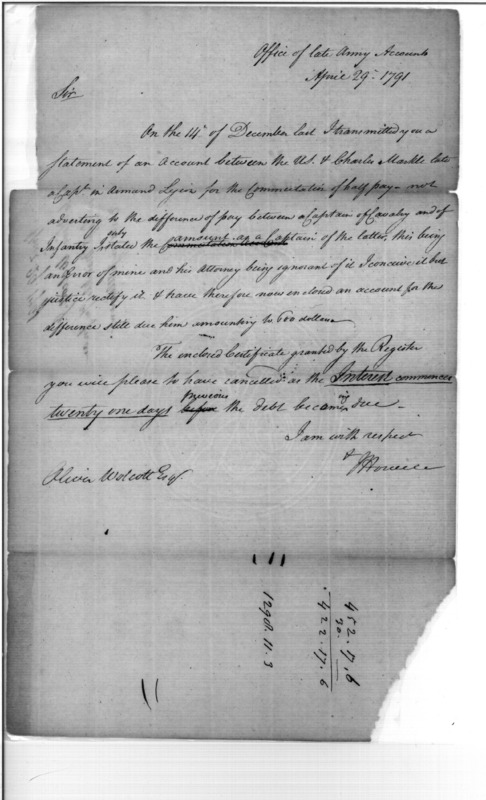 Office of late Army Accounts
April 29th 1791
Sir
On the 14th of December last I transmitted you a
Statement of an Account between the U.S. & Charles Markle late
a Capt in Armand Legion for the Commutation of half pay - not
adverting to the difference of pay between a Captain of Cavalry and of
Infantry I only stated the amount as a Captain of the latter, this being
an Error of mine and his Attorney being ignorant of it I conceive it but
justice rectify it & have therefore now enclosed an account for the
difference still due him amounting to 600 dollars
The enclosed Certificate granted by the Register
you will please to have cancelled as the Interest commences
twenty one days before previous the debt becoming due -
I am with respect
Oliver Wolcott Esqr
452.17.6
30.
422.17.6
1290.11.3